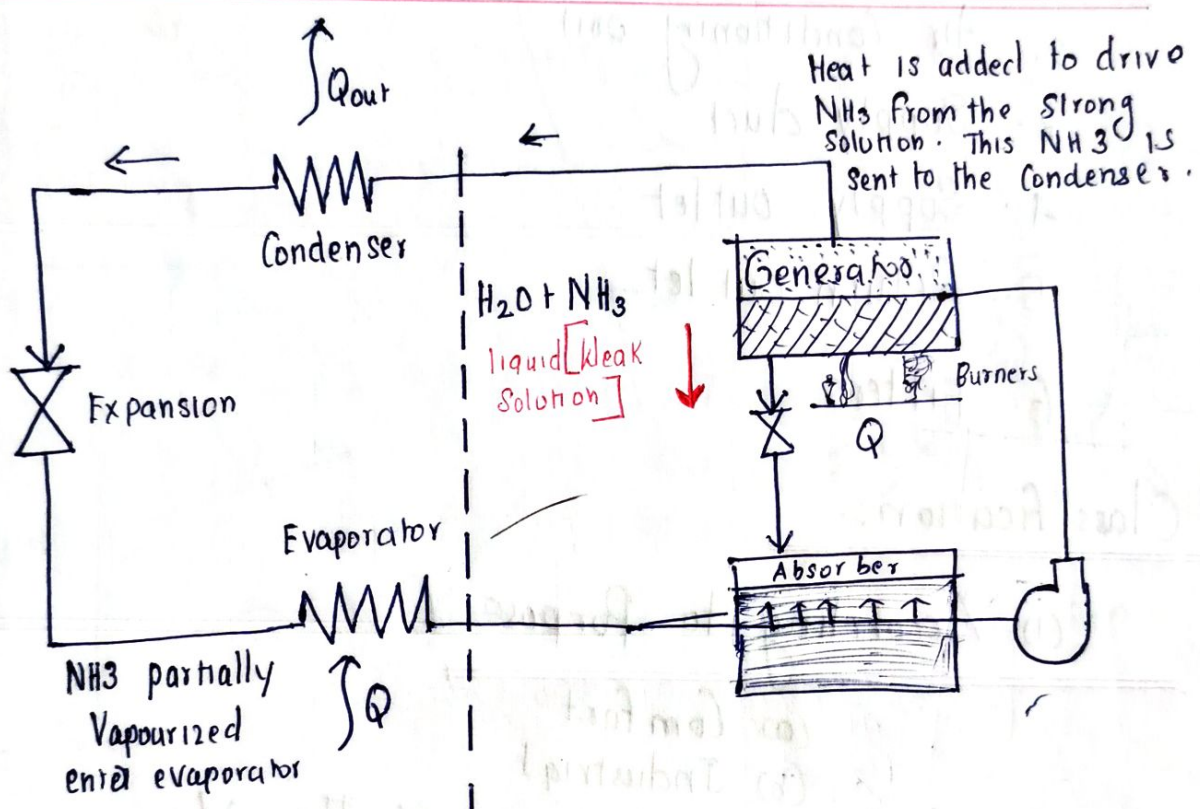 Qout
Heat is added to drive
NH3 from the Strong
Solution. This NH3 is
sent to the Condenser.
Condenser
Generator
H2O + NH3
liquid [Weak
Solution]
Burners
Q
Expansion
Evaporator
Absorber
NH3 partially
Vapourized
enter evaporator
Q